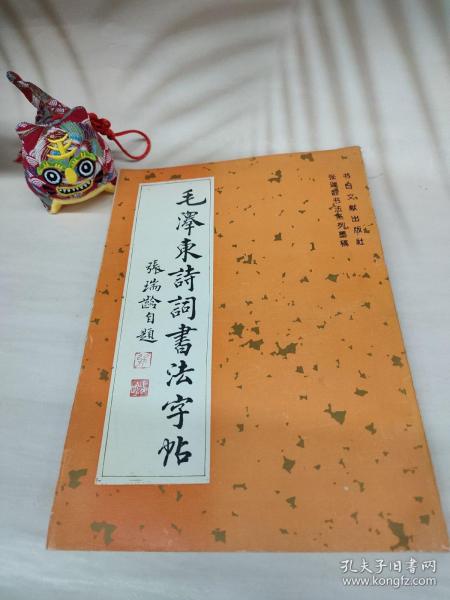 毛澤東詩詞書法字帖
張瑞龄自題
张瑞龄书法系列墨稿
书目文献出版社
孔夫子旧书网
www.kongfz.com